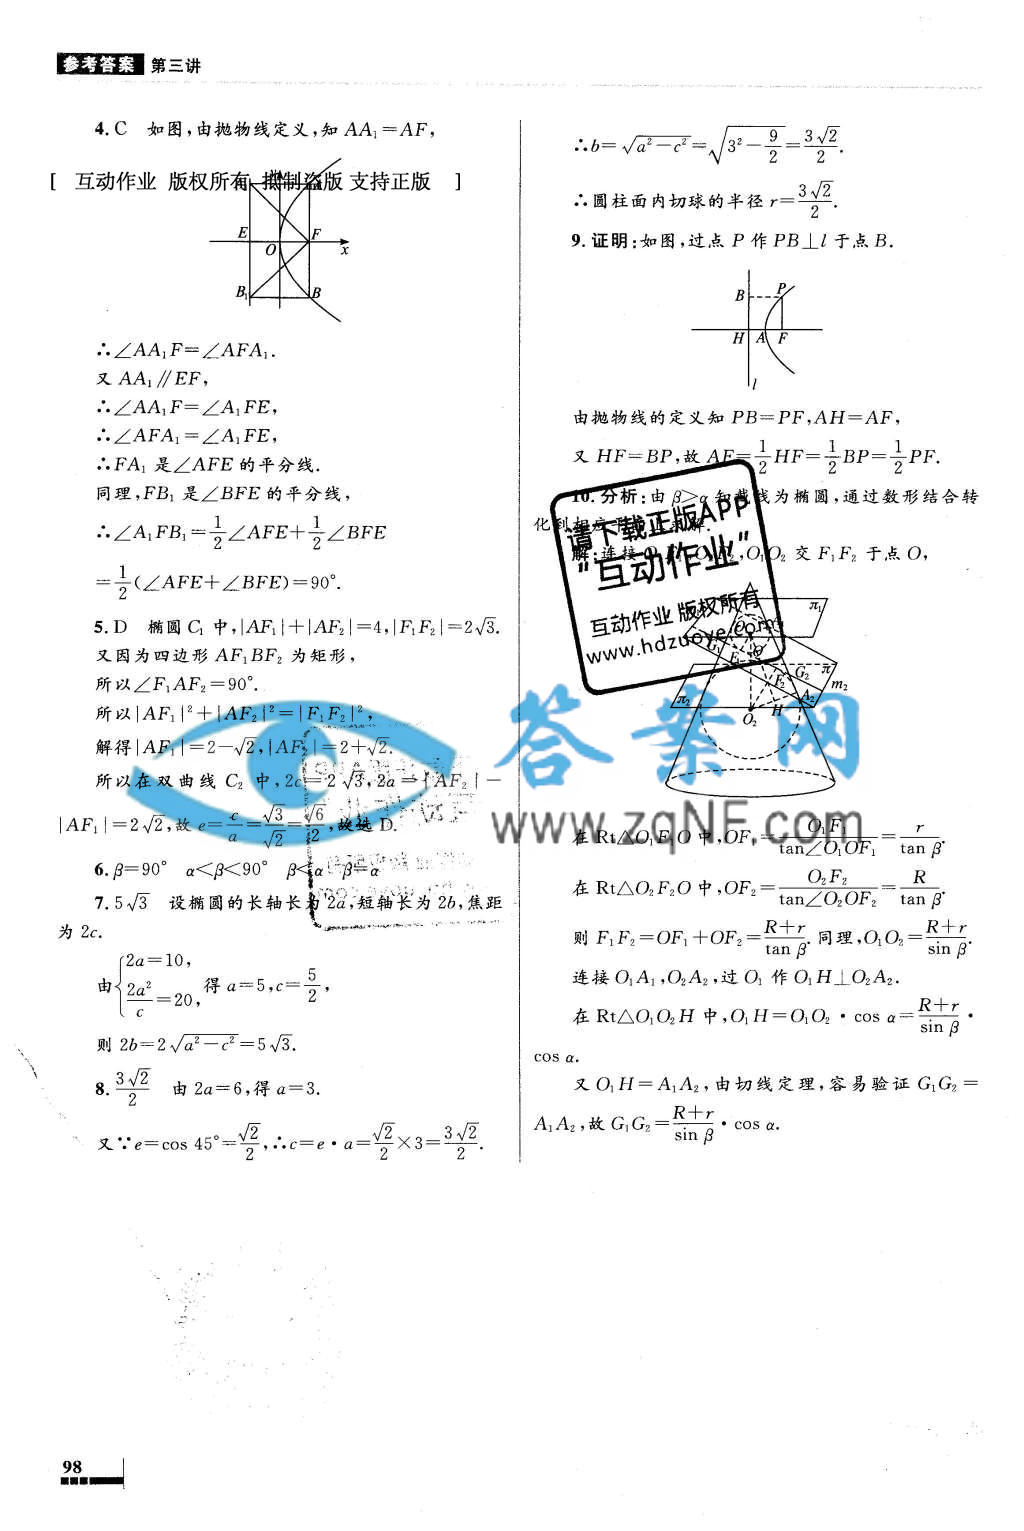 参考答案 第三讲
4.C 如图,由抛物线定义,知 AA₁=AF,
[ 互动作业 版权所有 拟制盗版 支持正版 ]
E
O
F
x
B₁
B
∴∠AA₁F=∠AFA₁.
又 AA₁∥EF,
∴∠AA₁F=∠A₁FE,
∴∠AFA₁=∠A₁FE,
∴FA₁ 是∠AFE 的平分线.
同理,FB₁ 是∠BFE 的平分线,
∴∠A₁FB₁=1/2∠AFE+1/2∠BFE
=1/2(∠AFE+∠BFE)=90°.
5.D 椭圆 C₁ 中,|AF₁|+|AF₂|=4,|F₁F₂|=2√3.
又因为四边形 AF₁BF₂ 为矩形,
所以∠F₁AF₂=90°.
所以|AF₁|²+|AF₂|²=|F₁F₂|²,
解得|AF₁|=2-√2,|AF₂|=2+√2.
所以在双曲线 C₂ 中,2c=2√3,2a=|AF₂|-
|AF₁|=2√2,故 e=c/a=√3/√2=√6/2,故选 D.
6.β=90° α<β<90° β<α β=α
7.5√3 设椭圆的长轴长为 2a,短轴长为 2b,焦距
为 2c.
由{2a=10, 2a²/c=20, 得 a=5,c=5/2,
则 2b=2√(a²-c²)=5√3.
8. 3√2/2 由 2a=6,得 a=3.
又∵e=cos 45°=√2/2,∴c=e·a=√2/2×3=3√2/2.
∴b=√(a²-c²)=√(3²-9/2)=3√2/2.
∴圆柱面内切球的半径 r=3√2/2.
9.证明:如图,过点 P 作 PB⊥l 于点 B.
B
P
H
A
F
l
由抛物线的定义知 PB=PF,AH=AF,
又 HF=BP,故 AF=1/2HF=1/2BP=1/2PF.
10.分析:由 β>α 知截线为椭圆,通过数形结合转
解:连接 O₁F₁,O₂F₂,O₁O₂ 交 F₁F₂ 于点 O,
请下载正版APP
“互动作业”
互动作业 版权所有
www.hdzuoye.com
π₁
G₁
π
G₂
F₂
m₂
A₂
π₂
O₂
H
答案网
www.zqNF.com
在 Rt△O₁F₁O 中,OF₁=O₁F₁/tan∠O₁OF₁=r/tan β.
在 Rt△O₂F₂O 中,OF₂=O₂F₂/tan∠O₂OF₂=R/tan β.
则 F₁F₂=OF₁+OF₂=(R+r)/tan β.同理,O₁O₂=(R+r)/sin β.
连接 O₁A₁,O₂A₂,过 O₁ 作 O₁H⊥O₂A₂.
在 Rt△O₁O₂H 中,O₁H=O₁O₂·cos α=(R+r)/sin β·
cos α.
又 O₁H=A₁A₂,由切线定理,容易验证 G₁G₂=
A₁A₂,故 G₁G₂=(R+r)/sin β·cos α.
98